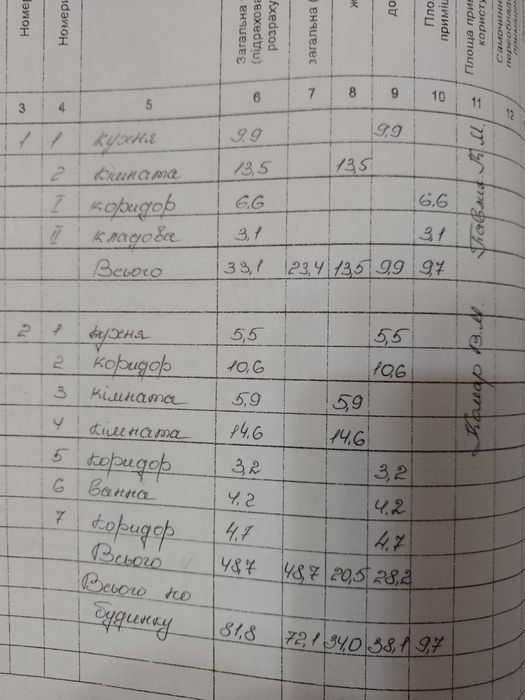 Номер
Номери
Загальна
(підрахова
розраху
загальна (
ж
до
Пло
приміщ
Площа прим
користу
Самочинн
переобладн
3 4 5 6 7 8 9 10 11 12
1 1 кухня 9,9 9,9
2 кімната 13,5 13,5
I коридор 6,6 6,6
II кладова 3,1 3,1
Всього 33,1 23,4 13,5 9,9 9,7
В.М.
2 1 кухня 5,5 5,5
2 коридор 10,6 10,6
3 кімната 5,9 5,9
4 кімната 14,6 14,6
5 коридор 3,2 3,2
6 ванна 4,2 4,2
7 коридор 4,7 4,7
Всього 48,7 48,7 20,5 28,2
Всього по
будинку 81,8 72,1 34,0 38,1 9,7
Комар В.М